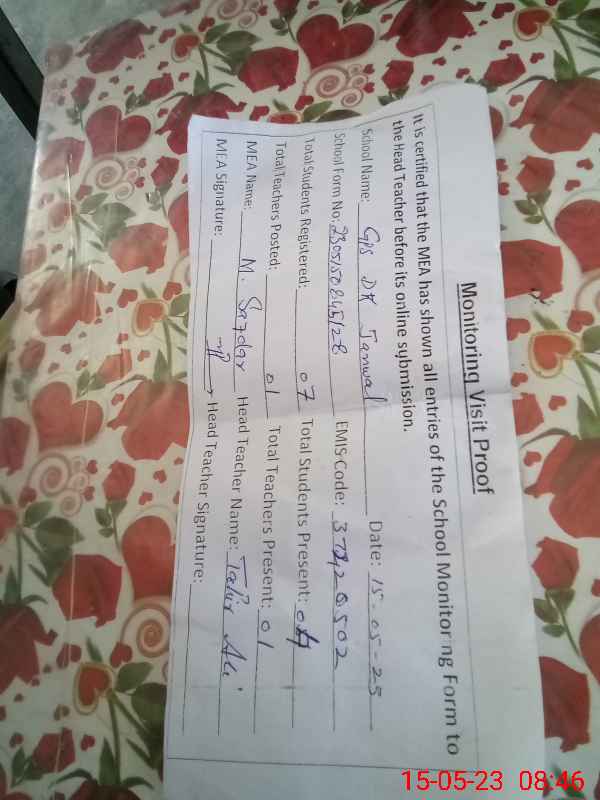 Monitoring Visit Proof
It is certified that the MEA has shown all entries of the School Monitoring Form to
the Head Teacher before its online submission.
School Name: GPS DK Janwal Date: 15-05-23
School Form No: 2305150845128 EMIS Code: 37220502
Total Students Registered: 07 Total Students Present: 04
Total Teachers Posted: 01 Total Teachers Present: 01
MEA Name: M. Safdar Head Teacher Name: Tahir Ali
MEA Signature: Head Teacher Signature:
15-05-23 08:46